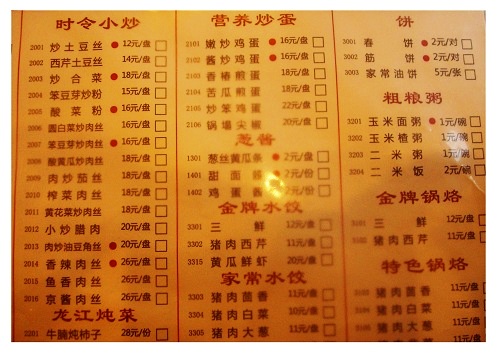 时令小炒
2001 炒土豆丝 12元/盘
2002 西芹土豆丝 14元/盘
2003 炒合菜 18元/盘
2004 笨豆芽炒粉 15元/盘
2005 酸菜粉 16元/盘
2006 圆白菜炒肉丝 18元/盘
2007 笨豆芽炒肉丝 16元/盘
2008 酸黄瓜炒肉丝 18元/盘
2009 肉炒茄丝 18元/盘
2010 榨菜肉丝 18元/盘
2011 黄花菜炒肉丝 18元/盘
2012 小炒腊肉 20元/盘
2013 肉炒油豆角丝 20元/盘
2014 香辣肉丝 26元/盘
2015 鱼香肉丝 26元/盘
2016 京酱肉丝 26元/盘
龙江炖菜
3201 牛腩炖柿子 28元/份
营养炒蛋
2101 嫩炒鸡蛋 16元/盘
2102 酱炒鸡蛋 16元/盘
2103 香椿煎蛋 18元/盘
2104 苦瓜煎蛋 18元/盘
2105 炒笨鸡蛋 22元/盘
2106 锅塌尖椒 20元/盘
葱酱
1301 葱丝黄瓜条 2元/盘
1401 甜面酱 2元/份
1402 鸡蛋酱 2元/份
金牌水饺
3301 三鲜 12元/盘
3302 猪肉西芹 11元/盘
3315 黄瓜鲜虾 20元/盘
家常水饺
3303 猪肉茴香 11元/盘
3304 猪肉白菜 10元/盘
3305 猪肉大葱 11元/盘
饼
3001 春饼 2元/对
3002 筋饼 2元/对
3003 家常油饼 5元/张
粗粮粥
3201 玉米面粥 1元/碗
3202 玉米楂粥 1元/碗
3203 二米粥 1元/碗
3204 二米饭 2元/碗
金牌锅烙
3101 三鲜 12元/盘
3102 猪肉西芹 11元/盘
特色锅烙
3103 猪肉茴香 11元/盘
3104 猪肉白菜 10元/盘
猪肉大葱 11元/盘